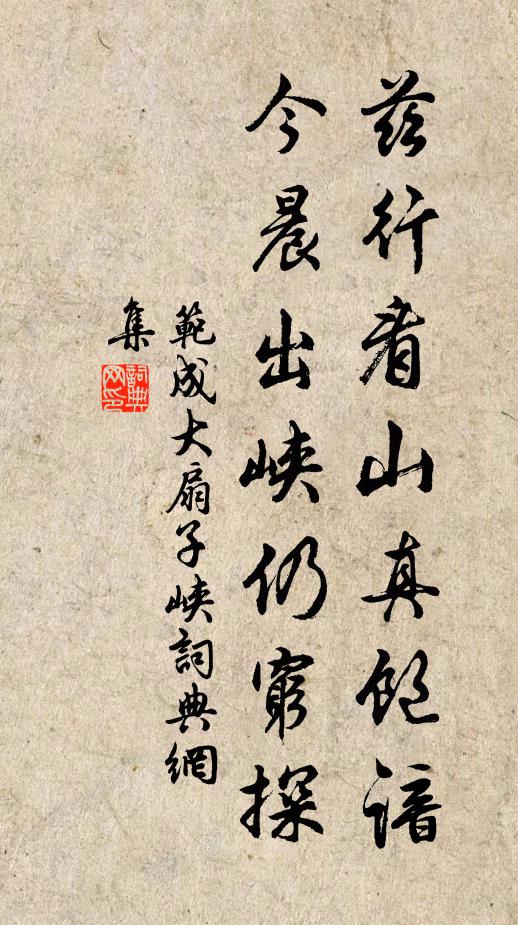 茲行看山真飽諳
今晨出峽仍窮探
範成大扇子峽詞典網
集
詞典網印